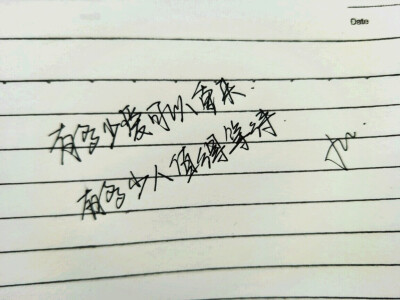 Date
有多少爱可以重来.
有多少人值得等待.